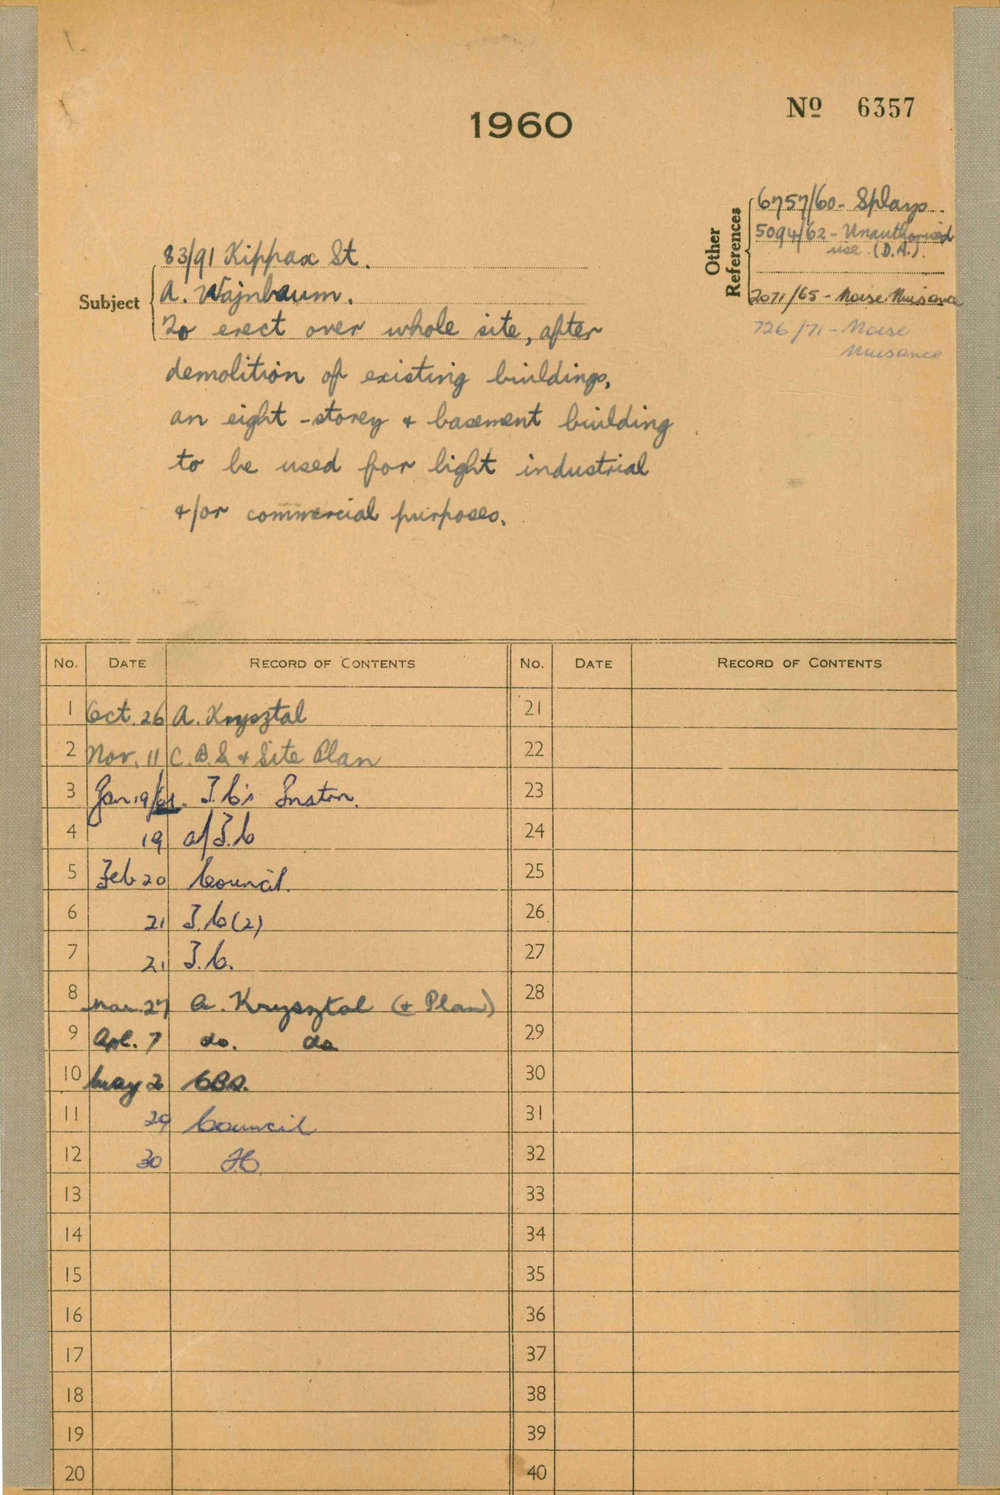 1960
Nº 6357
Other References
6757/60 - Splays
5094/62 - Unauthorised
use (D.A.).
2071/65 - Noise Nuisance
726/71 - Noise
Nuisance
Subject
83/91 Kippax St.
A. Wajnbaum.
To erect over whole site, after
demolition of existing buildings,
an eight-storey + basement building
to be used for light industrial
+/or commercial purposes.
No. DATE RECORD OF CONTENTS No. DATE RECORD OF CONTENTS
1 Oct. 26 A. Krysztal 21
2 Nov. 11 C.B.S + Site Plan 22
3 Jan 19/61. Instn. 23
4 19 24
5 Feb 20 Council. 25
6 21 (2) 26
7 21 27
8 Mar. 27 A. Krysztal (+ Plan) 28
9 Apl. 7 do. do 29
10 May 2 CBS. 30
11 29 Council 31
12 30 32
13 33
14 34
15 35
16 36
17 37
18 38
19 39
20 40